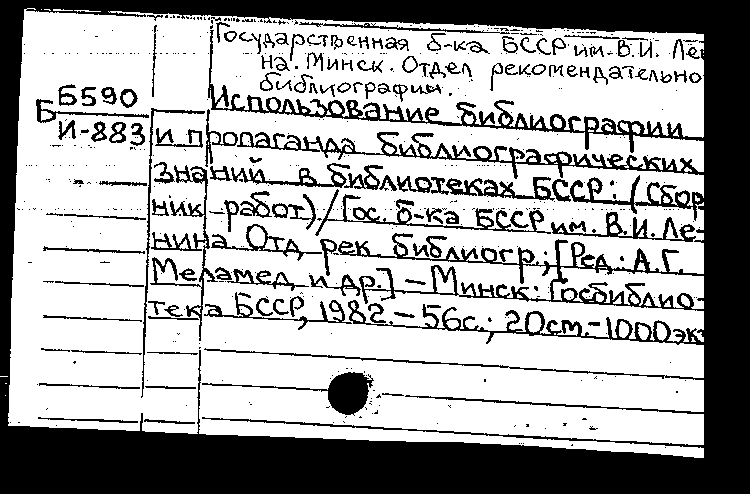 Государственная б-ка БССР им. В.И. Ле
на. Минск. Отдел рекомендательно
библиографии.
Б Б590
И-883
Использование библиографии
и пропаганда библиографических
знаний в библиотеках БССР: (Сбор
ник работ)/Гос. б-ка БССР им. В.И. Ле-
нина. Отд. рек. библиогр.; [Ред.: А.Г.
Меламед и др.] – Минск: Госбиблио-
тека БССР, 1982. – 56с.; 20см. – 1000 экз